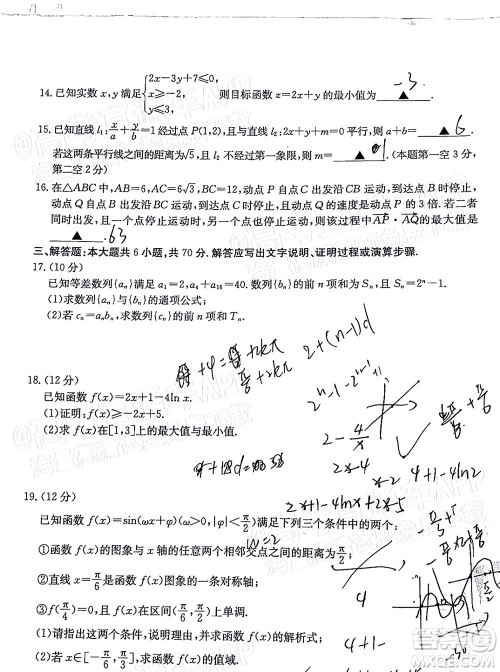 14. 已知实数 x,y 满足{2x-3y+7≤0, x≥-2, y≤3, 则目标函数 z=2x+y 的最小值为 ▲ . -3
15. 已知直线 l₁: x/a + y/b =1 经过点 P(1,2),且与直线 l₂:2x+y+m=0 平行,则 a+b= ▲ . 6
若这两条平行线之间的距离为√5,且 l₂ 不经过第一象限,则 m= ▲ .(本题第一空 3 分,
第二空 2 分)
16. 在△ABC 中,AB=6,AC=6√3,BC=12,动点 P 自 C 出发沿 CB 运动,到达点 B 时停止,
动点 Q 自 B 出发沿 BC 运动,到达点 C 时停止,且动点 Q 的速度是动点 P 的 3 倍. 若二者
同时出发,且一个点停止运动时,另一个点也停止运动,则该过程中 AP·AQ 的最大值是
▲ . 63
三、解答题:本大题共 6 小题,共 70 分. 解答应写出文字说明、证明过程或演算步骤.
17. (10 分)
已知等差数列{aₙ}满足 a₁=2,a₄+a₁₆=40. 数列{bₙ}的前 n 项和为 Sₙ,且 Sₙ=2ⁿ-1.
(1)求数列{aₙ}与{bₙ}的通项公式;
(2)若 cₙ=aₙbₙ,求数列{cₙ}的前 n 项和 Tₙ.
2+(n-1)d
18. (12 分)
已知函数 f(x)=2x+1-4ln x.
(1)证明:f(x)≥-2x+5.
(2)求 f(x)在[1,3]上的最大值与最小值.
2-4/x
2x-4
x-2
4+1-4ln2
2x+1-4lnx+2x-5
19. (12 分)
已知函数 f(x)=sin(ωx+φ)(ω>0,|φ|<π/2)满足下列三个条件中的两个:
①函数 f(x)的图象与 x 轴的任意两个相邻交点之间的距离为π/2;
w=2
②直线 x=π/6是函数 f(x)图象的一条对称轴;
③f(π/4)=0,且 f(x)在区间(π/6,π/2)上单调.
4
(1)请指出这两个条件,说明理由,并求函数 f(x)的解析式;
(2)若 x∈[-π/6,π/3],求函数 f(x)的值域.
4+1-